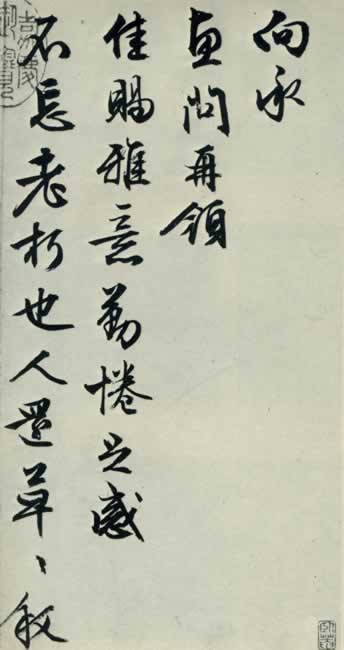 向承
惠問再領
佳賜雅意勤惓足感
不忘老朽也人還草〻叙